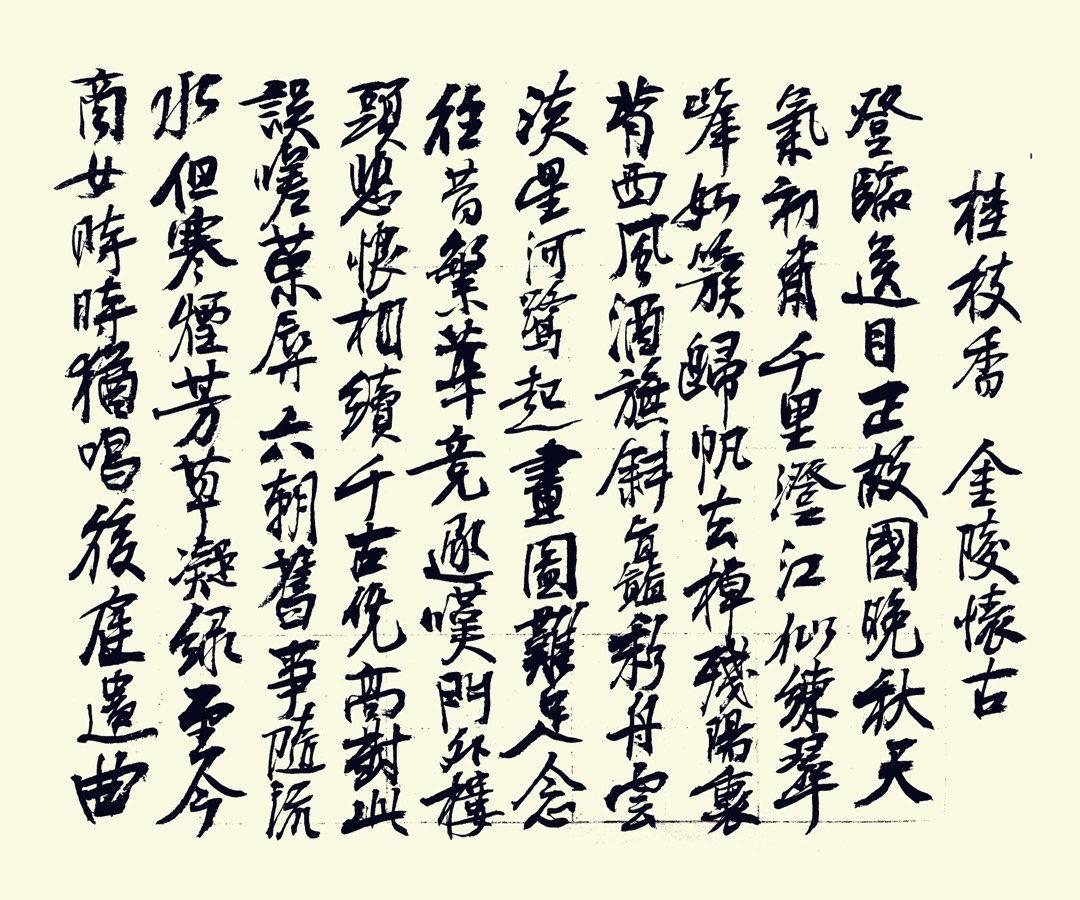 桂枝香 金陵懷古
登臨送目正故國晚秋天
氣初肅千里澄江似練翠
峯如簇歸帆去棹殘陽裏
背西風酒旗斜矗彩舟雲
淡星河鷺起畫圖難足念
往昔繁華竞逐嘆門外樓
頭悲恨相續千古凭高對此
誤嗟榮辱六朝舊事隨流
水但寒煙芳草凝綠至今
商女時時猶唱後庭遺曲